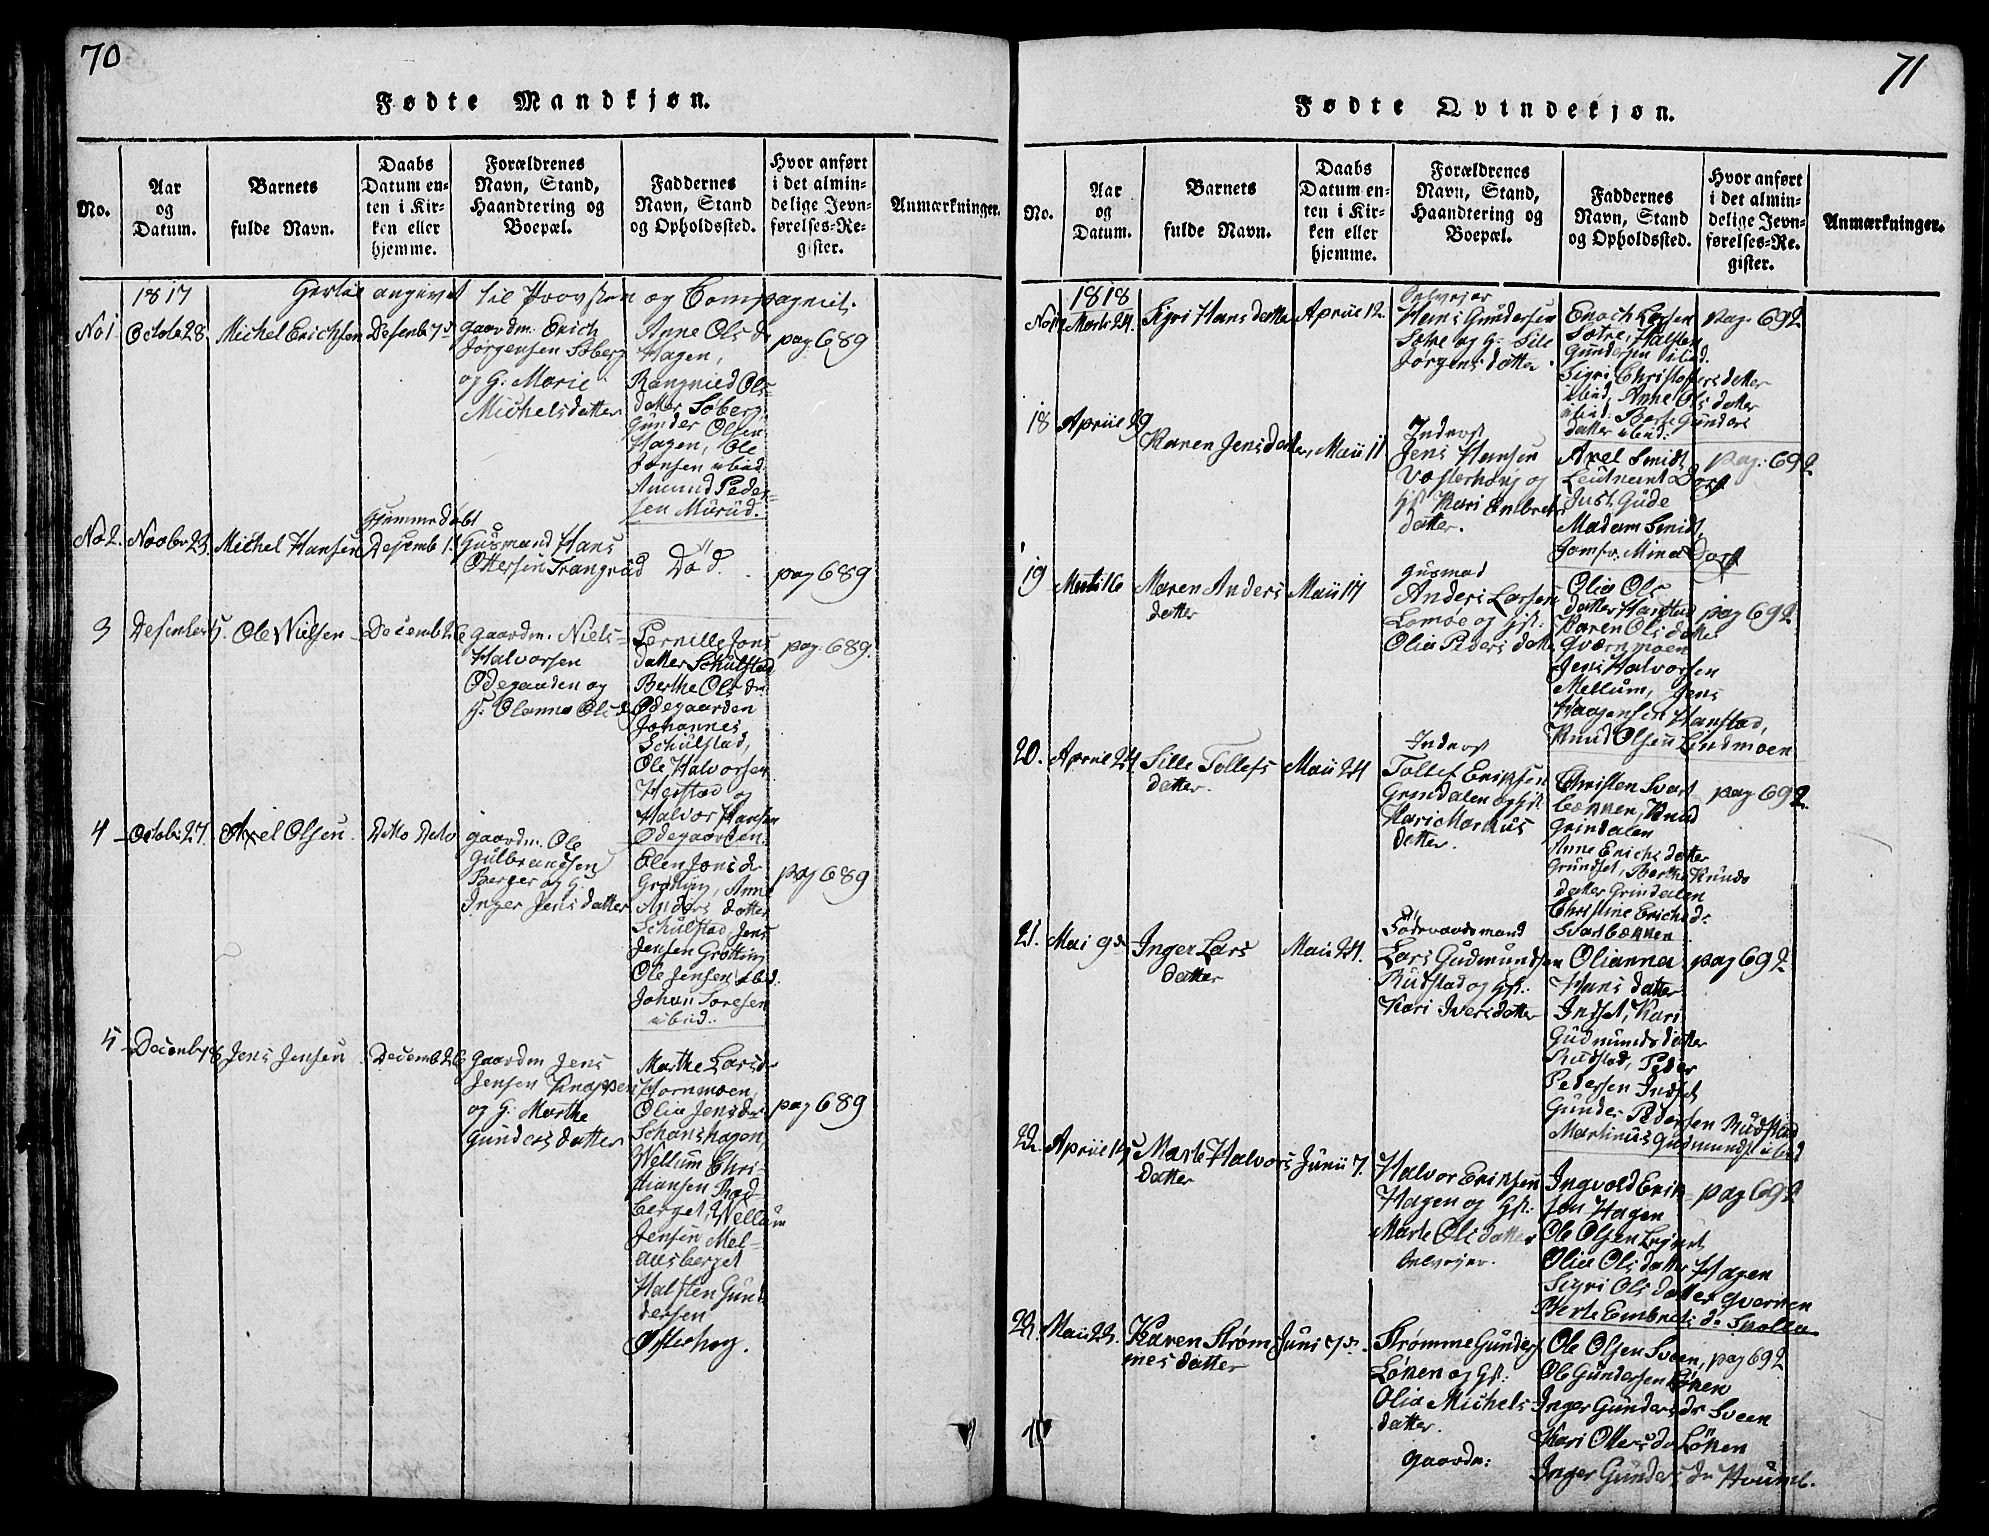 70
Fødte Mandkjøn.
No.
Aar
og
Datum.
Barnets
fulde Navn.
Daabs
Datum en-
ten i Kir-
ken eller
hjemme.
Forældrenes
Navn, Stand,
Haandtering og
Boepæl.
Faddernes
Navn, Stand
og Opholdssted.
Hvor anført
i det almin-
delige Jevn-
førelses-Re-
gister.
Anmærkninger.
1817
angivet til Provsten og Compagniet.
No 1
Octobr 28.
Michel Erichsen
Desenb 7de
gaardm. Erich
Jørgensen Søberg
og G. Marie
Michelsdatter
Anne Ols dr
Hagen,
Rangnied Ols
datter Søberg
Gunder Olsen
Hagen, Ole
Jonsen ibid
Amund Peder-
sen Mürüd.
pag 689
No 2.
Novbr 23.
Michel Hansen
Hjemme døbt
Desemb 13
Husmand Hans
Ottersen Trangrud
Død.
pag 689
3
Desember 5.
Ole Nielsen
Decemb 26
gaardm. Niels
Halvorsen
Ødegaarden og
G. Olenna Ols dr
Pernille Jons
datter Schülstad
Berthe Ols dr
Ødegaarden
Johannes
Schülstad,
Ole Halvorsen
Herstad og
Halvor Hansen
Ødegaarden.
pag: 689.
4
Octobr 27.
Axel Olsen
Detto Deto
gaardm. Ole
Gulbrandsen
Berger og G.
Inger Jensdatter
Elen Jons dr
Grøting, Anne
Anders datter
Schülstad, Jens
Jensen Grøtting
Ole Jensen ibid.
Johan Toresen
ibid.
pag 689
5
Decenb 18
Jens Jensen
Decemb 26
gaardm Jens
Jensen Knappen
og G. Marthe
Gundersdatter
Marthe Lars dr
Hornmoen,
Olia Jens dr
Schanshagen,
Wellum Chri-
stiansen Rad
berget, Wellum
Jensen Mel-
aasberget
Halsten Gün
dersen
Østerhog.
pag 689
71
Fødte Qvindekjøn.
No.
Aar
og
Datum.
Barnets
fulde Navn.
Daabs
Datum en-
ten i Kir-
ken eller
hjemme.
Forældrenes
Navn, Stand,
Haandtering og
Boepæl.
Faddernes
Navn, Stand
og Opholdssted.
Hvor anført
i det almin-
delige Jevn-
førelses-Re-
gister.
Anmærkninger.
1818
No 17
Marts 24.
Sigri Hansdatter
Apriie 12.
Selvejer
Hans Gündersen
Sætre og G. Sile
Jørgensdatter
Enoch Larsen
Sætre, Halsten
Gundersen ibid.
Sigri Christophersdatter
ibid, Anne Ols datter
ibid. Berte Gunders
datter ibid.
pag. 692
18
Apriie 29
Karen Jensdatter,
Maii 11
Inderst
Jens Hansen
Vesterhaug og
Hst Kari Embrets
datter.
Axel Smidt
Leutnant Dorf
Just Gude
Madam Smidt,
Jomfr. Mina Dorf
pag. 692
19
Marts 16
Maren Anders
datter
Maii 17
Husmad
Anders Larsen
Lomoe og Hst:
Olia Peders datter
Olia Ols
datter Hanstad
Karen Ols datter
Qværnmoen
Jens Halvorsen
Mellum, Jens
Haagensen Hanstad,
Knud Olsen Lindmoen
pag 692
20.
Apriie 24.
Sille Tollefs
datter.
Maii 24
Inderst
Tollef Eriksen
Grindalen og Hst
Kari Markus
datter.
Christen Svart
bækken, Knud
Grindalen
Anne Erichs datter
Grundset, Berthe Knuds
datter Grindalen
Christine Erichs dr
Svartbækken
pag 692.
21.
Mai 9de
Inger Lars
datter
Maii 24.
Lars Gudmundsen
Rudstad og Hst:
Kari Iversdatter
Olianna
Hans datter
Indset, Kari
Gudmundsdatter
Rudstad, Peder
Pedersen Indset
Gunder Pedersen Rudstad
Martinus Gudmundsn ibid
pag 692
22.
Apriie 15
Marte Halvors
datter
Junii 7.
Halvor Eriksen
Hagen og Hst:
Marte Olsdatter
Selvejer.
Ingvold Erik
sen Hagen
Ole Olsen
Olia Olsdatter Hagen
Sigri Ols datter Qvernen
Berte Embrets dr Svolla
pag 692
23.
Maii 23.
Karen Strøm
mesdatter
Juni 7de.
Strømme Gunders
Løken og Hst.
Olia Michels
datter.
gaardm:
Ole Olsen Sveen,
Ole Gundersen Løken
Inger Gunders dr Sveen
Kari Oters dr Løken
Inger Gunders dr
pag 692